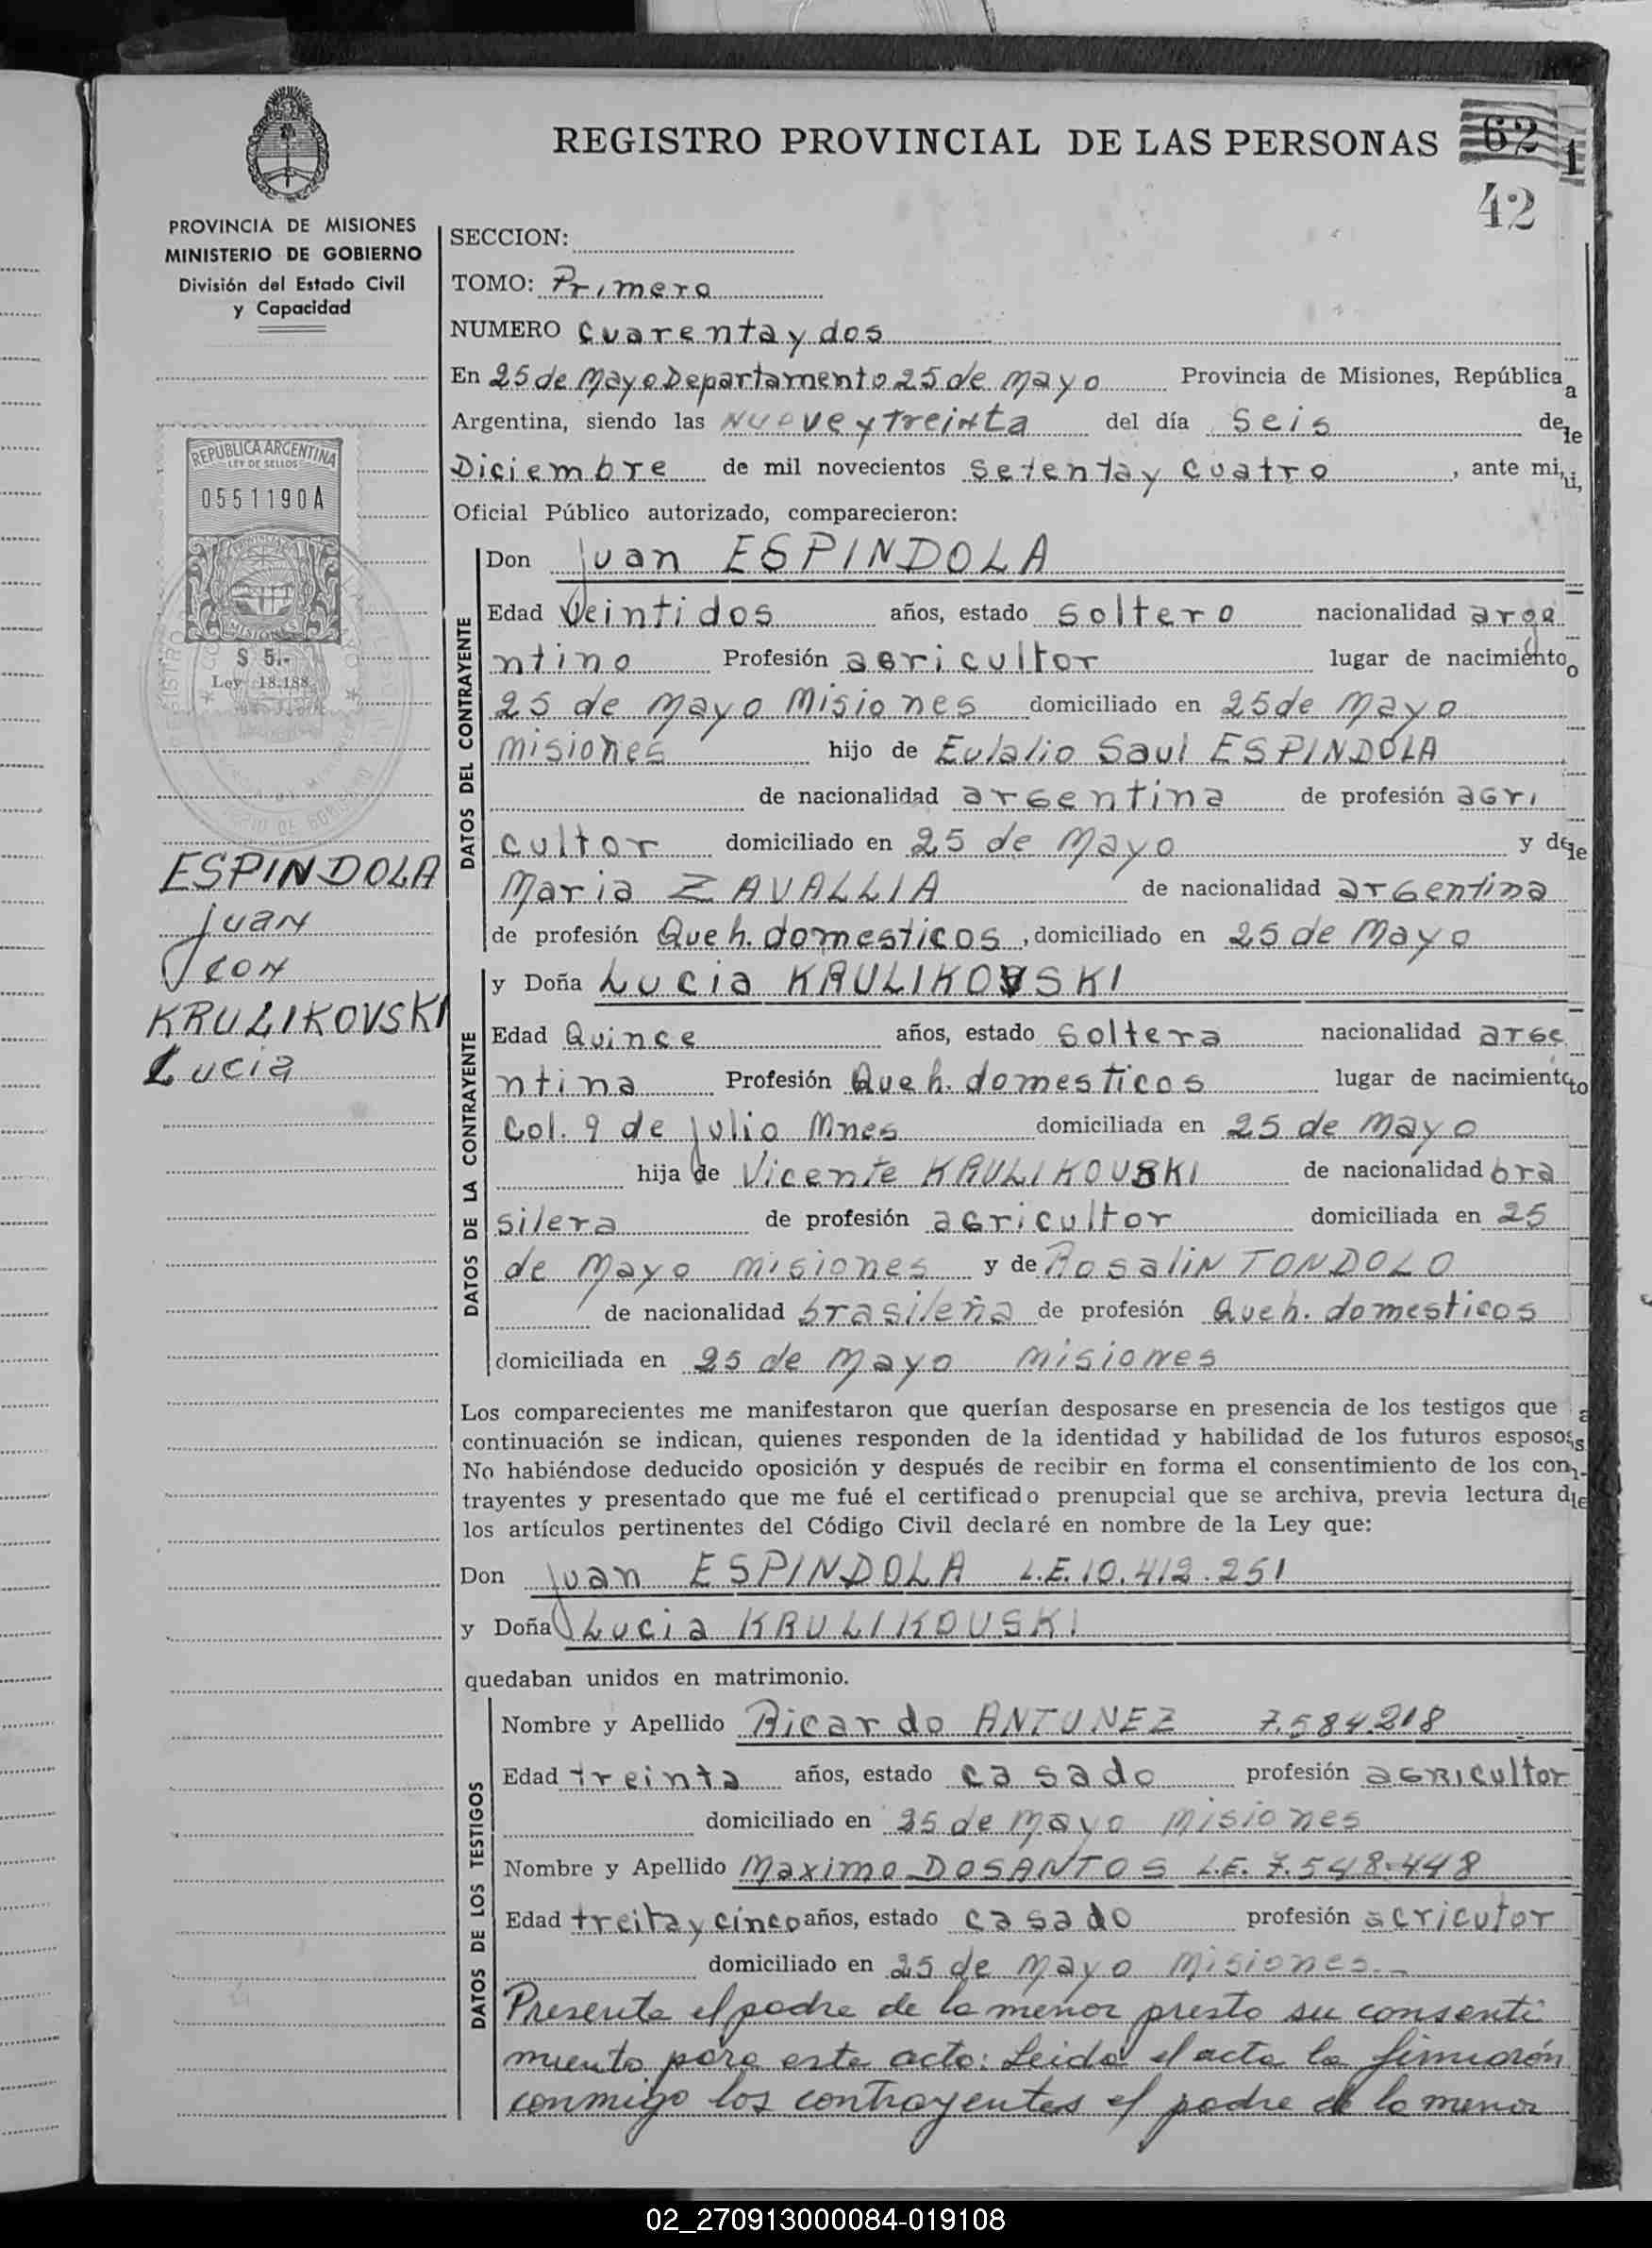 REGISTRO PROVINCIAL DE LAS PERSONAS
62
1
42
PROVINCIA DE MISIONES
MINISTERIO DE GOBIERNO
División del Estado Civil
y Capacidad
SECCION:
TOMO: Primero
NUMERO Cuarenta y dos
En 25 de Mayo Departamento 25 de Mayo Provincia de Misiones, República
Argentina, siendo las Nueve y Treinta del día Seis de
Diciembre de mil novecientos Setenta y Cuatro, ante mi,
Oficial Público autorizado, comparecieron:
REPUBLICA ARGENTINA
LEY DE SELLOS
0551190A
MISIONES
$ 5.-
Ley 18.188
DATOS DEL CONTRAYENTE
Don Juan ESPINDOLA
Edad Veintidos años, estado Soltero nacionalidad arge
ntino Profesión agricultor lugar de nacimiento
25 de Mayo Misiones domiciliado en 25 de Mayo
Misiones hijo de Eulalio Saul ESPINDOLA
de nacionalidad argentina de profesión agri
cultor domiciliado en 25 de Mayo y de
Maria ZAVALLIA de nacionalidad argentina
de profesión Queh. domesticos, domiciliado en 25 de Mayo
ESPINDOLA
Juan
con
KRULIKOVSKI
Lucia
DATOS DE LA CONTRAYENTE
y Doña Lucia KRULIKOVSKI
Edad Quince años, estado Soltera nacionalidad arge
ntina Profesión Queh. domesticos lugar de nacimiento
Col. 9 de Julio Mnes domiciliada en 25 de Mayo
hija de Vicente KRULIKOVSKI de nacionalidad bra
silera de profesión agricultor domiciliada en 25
de Mayo Misiones y de Rosalin TONDOLO
de nacionalidad brasileña de profesión Queh. domesticos
domiciliada en 25 de Mayo Misiones
Los comparecientes me manifestaron que querían desposarse en presencia de los testigos que a
continuación se indican, quienes responden de la identidad y habilidad de los futuros esposos
No habiéndose deducido oposición y después de recibir en forma el consentimiento de los con-
trayentes y presentado que me fué el certificado prenupcial que se archiva, previa lectura de
los artículos pertinentes del Código Civil declaré en nombre de la Ley que:
Don Juan ESPINDOLA L.E. 10.412.251
y Doña Lucia KRULIKOVSKI
quedaban unidos en matrimonio.
DATOS DE LOS TESTIGOS
Nombre y Apellido Ricardo ANTUNEZ 7.584.218
Edad treinta años, estado casado profesión agricultor
domiciliado en 25 de Mayo Misiones
Nombre y Apellido Maximo DOSANTOS L.E. 7.548.448
Edad treita y cinco años, estado casado profesión acricutor
domiciliado en 25 de Mayo Misiones.-
Presente el padre de la menor presto su consenti
miento para este acto: Leida el acta la firmarón
conmigo los contrayentes el padre de la menor
02_270913000084-019108